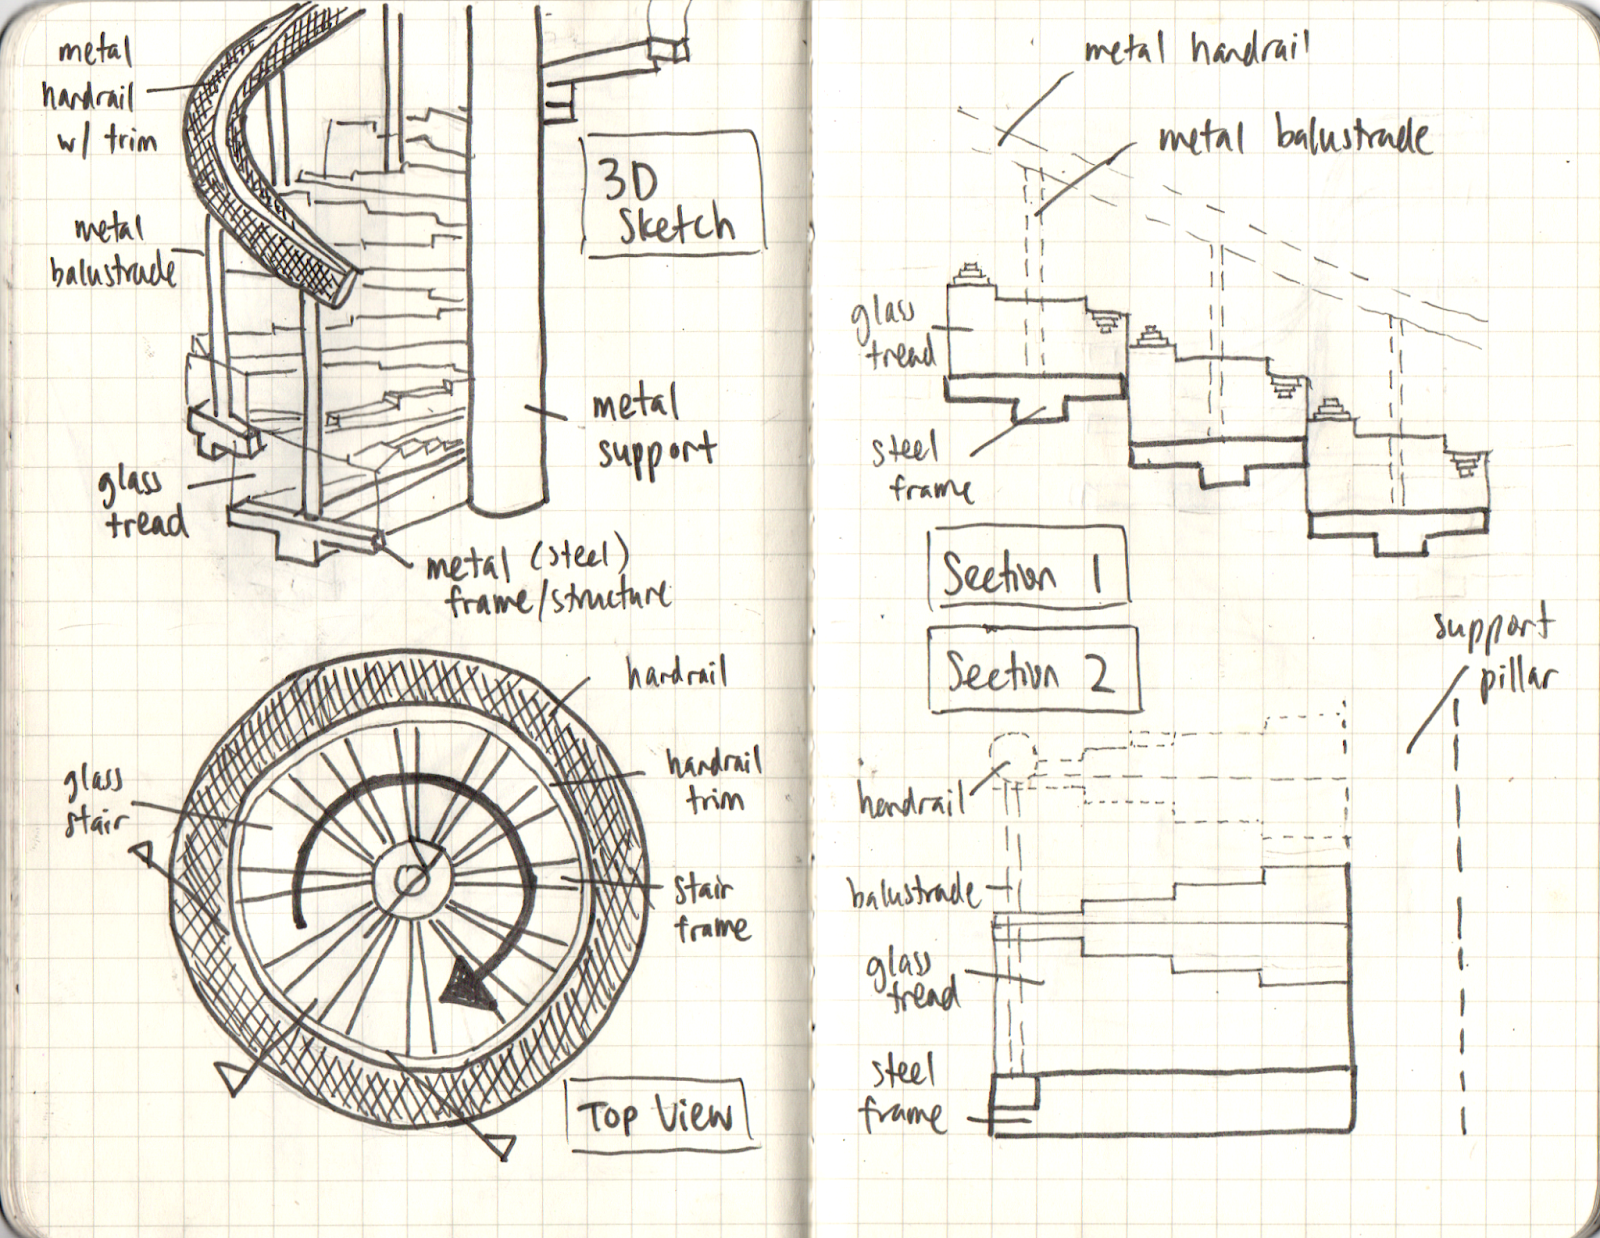 metal
handrail
w/ trim
3D
Sketch
metal
balustrade
metal
support
glass
tread
metal (steel)
frame/structure
handrail
glass
stair
handrail
trim
stair
frame
Top View
metal handrail
metal balustrade
glass
tread
steel
frame
Section 1
Section 2
support
pillar
handrail
balustrade
glass
tread
steel
frame